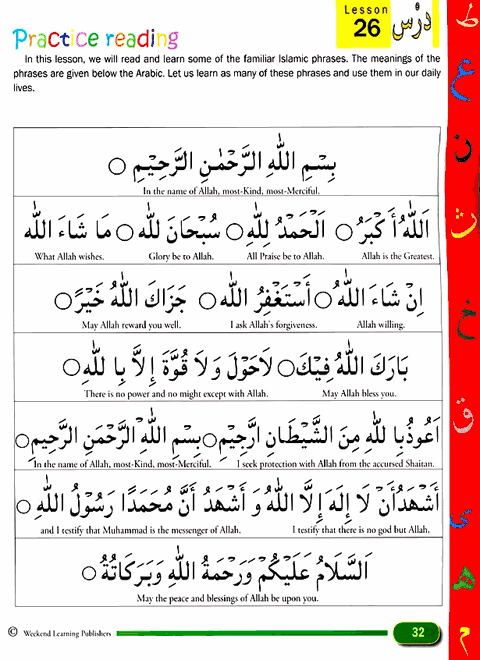 Lesson
26
دَرْس
Practice reading
In this lesson, we will read and learn some of the familiar Islamic phrases. The meanings of the
phrases are given below the Arabic. Let us learn as many of these phrases and use them in our daily
lives.
بِسْمِ اللّٰهِ الرَّحْمٰنِ الرَّحِيْمِ
In the name of Allah, most-Kind, most-Merciful.
اَللّٰهُ أَكْبَرُ اَلْحَمْدُ لِلّٰهِ سُبْحَانَ للّٰه مَا شَاءَ اللّٰه
What Allah wishes. Glory be to Allah. All Praise be to Allah. Allah is the Greatest.
اِنْ شَاءَ اللّٰهُ أَسْتَغْفِرُ اللّٰه جَزَاكَ اللّٰهُ خَيْرً
May Allah reward you well. I ask Allah's forgiveness. Allah willing.
بَارَكَ اللّٰهُ فِيْكَ لَاحَوْلَ وَلَا قُوَّةَ إِلَّا بِا للّٰهِ
There is no power and no might except with Allah. May Allah bless you.
اَعُوْذُبِا للّٰهِ مِنَ الشَّيْطَانِ ارَّجِيْمِ بِسْمِ اللّٰهِ الرَّحْمَنِ الرَّحِيْمِ
In the name of Allah, most-Kind, most-Merciful. I seek protection with Allah from the accursed Shaitan.
أَشْهَدُأَنْ لَا إِلَهَ إِلَّا اللّٰهُ وَ أَشْهَدُ أَنَّ مُحَمَدًا رَسُوْلُ اللّٰهِ
and I testify that Muhammad is the messenger of Allah. I testify that there is no god but Allah.
اَلسَّلَامُ عَلَيْكُمْ وَرَحْمَةُ اللّٰهِ وَبَرَكَاتُهُ
May the peace and blessings of Allah be upon you.
© Weekend Learning Publishers
32
ط
ع
ن
ث
خ
ق
ى
ه
م